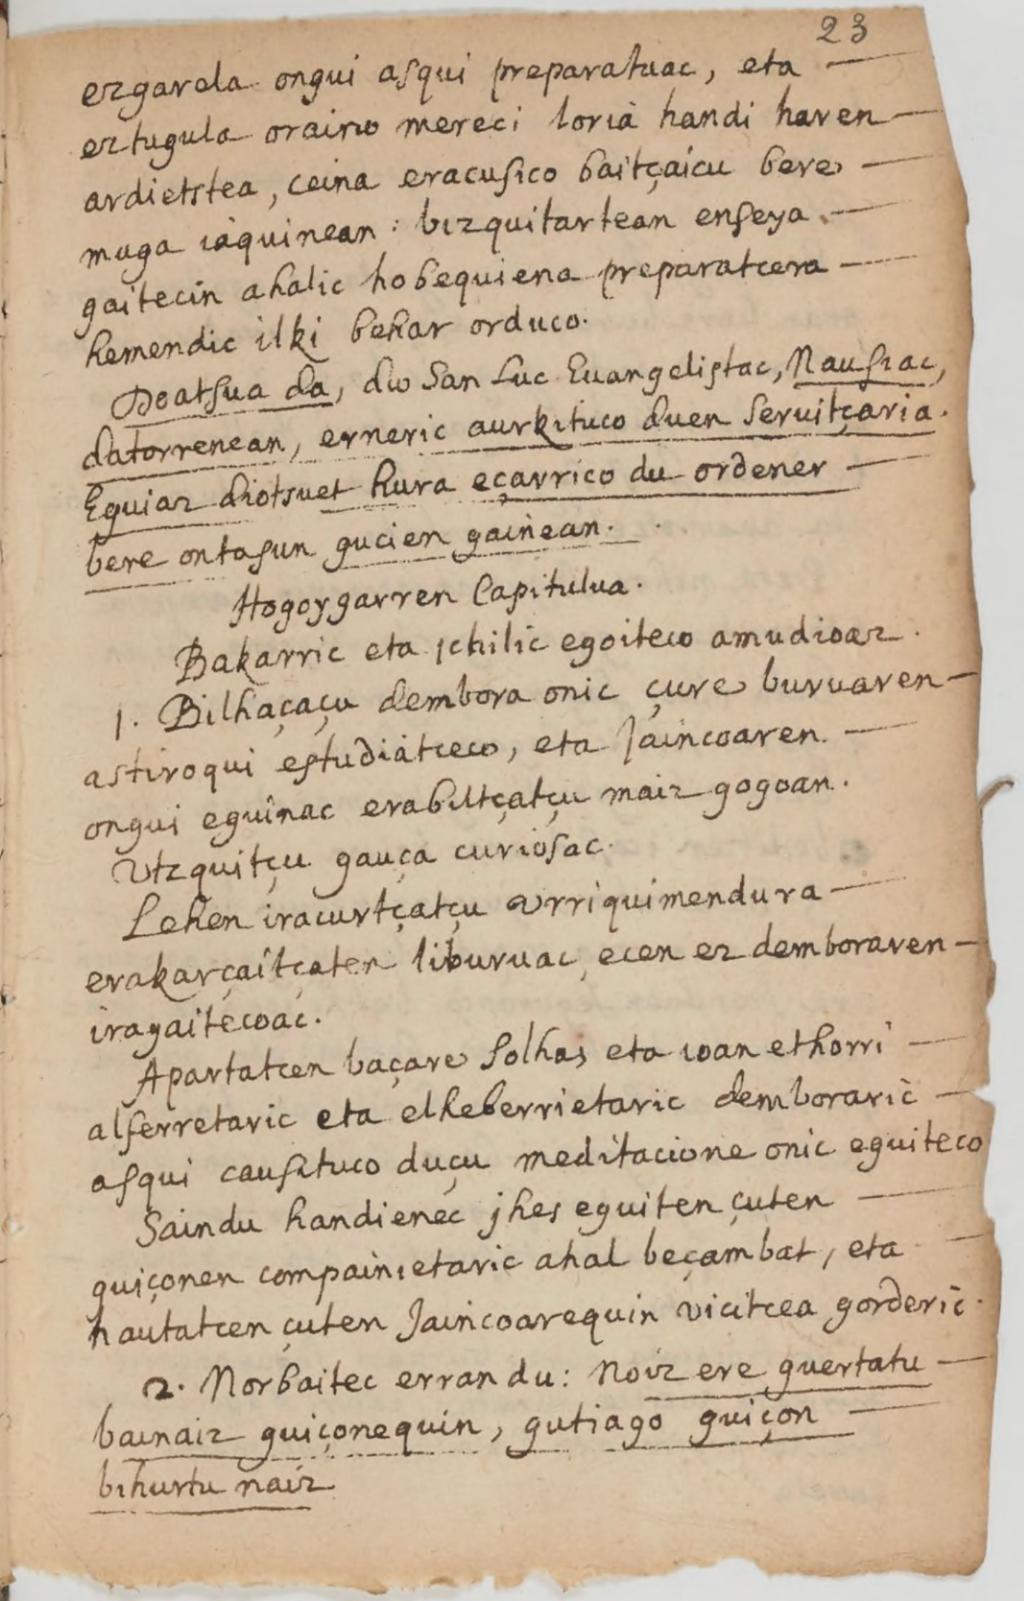 23
ezgarela ongui asqui preparatuac, eta —
eztugula oraino mereci loria handi haren —
ardietstea, ceina eracusico baitçaicu bere —
muga iaquinean : bizquitartean enseya —
gaitecin ahalic hobequiena preparatcera —
hemendic ilki behar orduco.
Doatsua da, dio San Luc Euangelistac, Nausiac,
datorrenean, erneric aurkituco duen Seruitçaria.
Eguiaz diotsuet hura eçarrico du ordener —
bere ontasun gucien gainean.
Hogoygarren Capitulua.
Bakarric eta ichilic egoiteco amudioaz.
1. Bilhaçaçu dembora onic çure buruaren —
astiroqui estudiatceco, eta Jaincoaren —
ongui eguinac erabiltçatçu maiz gogoan.
Utzquitçu gauça curiosac.
Lehen iracurtçatçu urriquimendura —
erakarçaitçaten liburuac, ecen ez demboraren —
iragaitecoac.
Apartatcen baçare solhas eta ioan ethorri —
alferretaric eta elheberrietaric demboraric —
asqui causituco duçu meditacione onic eguiteco
Saindu handienec ihes eguiten çuten —
guiçonen compainietaric ahal beçambat, eta —
hautatcen çuten Jaincoarequin vicitcea gorderic.
2. Norbaitec erran du: Noiz ere guertatu —
bainaiz guiçonequin, gutiago guiçon —
bihurtu naiz